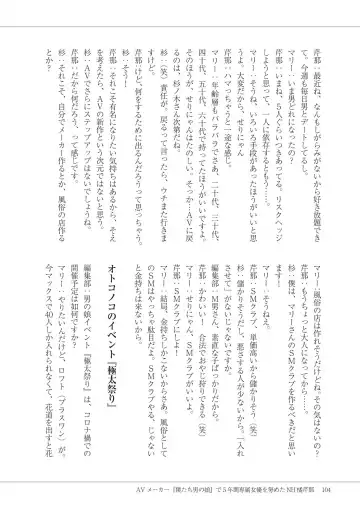 芹那：最近ね、なんもしがらみがないから好き放題でき
て、今週も毎日男とデートしてるし。
マリー：いま男どれになったの？
芹那：いまね、5人ぐらいつきあってる。リスクヘッジ
しようと思って、1人に依存するともう……。
マリー：そうね、いろいろ手段があったほうがいいと思
うよ。大変だから、せりにゃん
芹那：ハマっちゃうと一途な感じ。
マリー：年齢層もバラバラでさあ、二十代、三十代、
四十代、五十代、六十代で持ってたほうがいいですよ。
そのほうが、せりにゃんはたのしい、そっかーAVに戻
るのは、杉ノ木さん次第だね。
杉：（笑）責任が。戻るって言ったら、ウチまた行きま
すけど。
芹那：けど、何をするために出るんだろうって思っちゃう。
杉：そう！
芹那：それこそ有名になりたい気持ちはあるから、そえ
を考えたら、AVの新作という次元ではないと思う。
杉：AVでさらにステップアップはないでしょうね。
芹那：だから何だろう、って感じです。
杉：それこそ、自分でメーカー作るとか、風俗の店作る
とか？
マリー：風俗の店は作れそうだけどね。その気はないの？
芹那：もうちょっと大人になってから……。
杉：僕は、マリーさんのSMクラブを作るべきだと思
います。
マリー：そうねえ。
芹那：SMクラブ、単価高いから儲かりそう（笑）
杉：儲かりそうだし、悪さする人が少ないし、どうこう
させて〟がないじゃないですか。
編集部：M男さん、素直な子ばっかりだから。
芹那：かわいい！　合法でおやじ狩りできる（笑）
マリー：せりにゃん、SMクラブがいいよ。
芹那：SMクラブにしよ！
マリー：結局、金持ちしかこないからさあ。風俗として
のSMはやっちゃ駄目だよ。SMクラブやる。じゃない
と金持ちは来ないから。
オトコノコのイベント『極太祭り』
編集部：男の娘イベント『極太祭り』は、コロナ禍での
開催予定は如何ですか？
マリー：やりたいんだけど、ロフト（プラスワン）が、
今マックスで40人しか入れられなくて、花道を出すと花
AVメーカー『僕たち男の娘』で5年間専属女優を努めたNH橘芹那　104